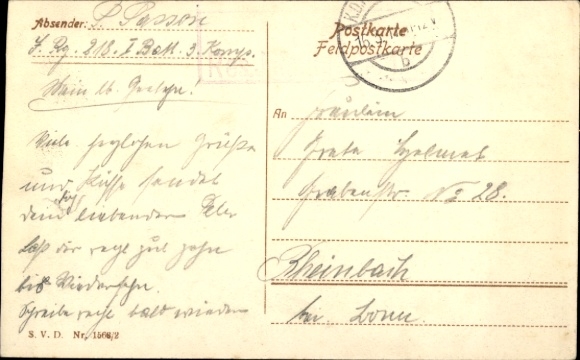 Absender: P. Passon
J. Rg. 218. I Batt. 3. Komp.
Mein lb.
Viele herzlichen Grüße
und Küsse sendet
dein dich liebender Peter
Laß der recht gut gehn
bis Wiedersehn.
Schreibe recht bald wieder
S. V. D. Nr. 1568/2
Postkarte
Feldpostkarte
An Fräulein
Greta
Grabenstr No 28.
Rheinbach
bei Bonn.